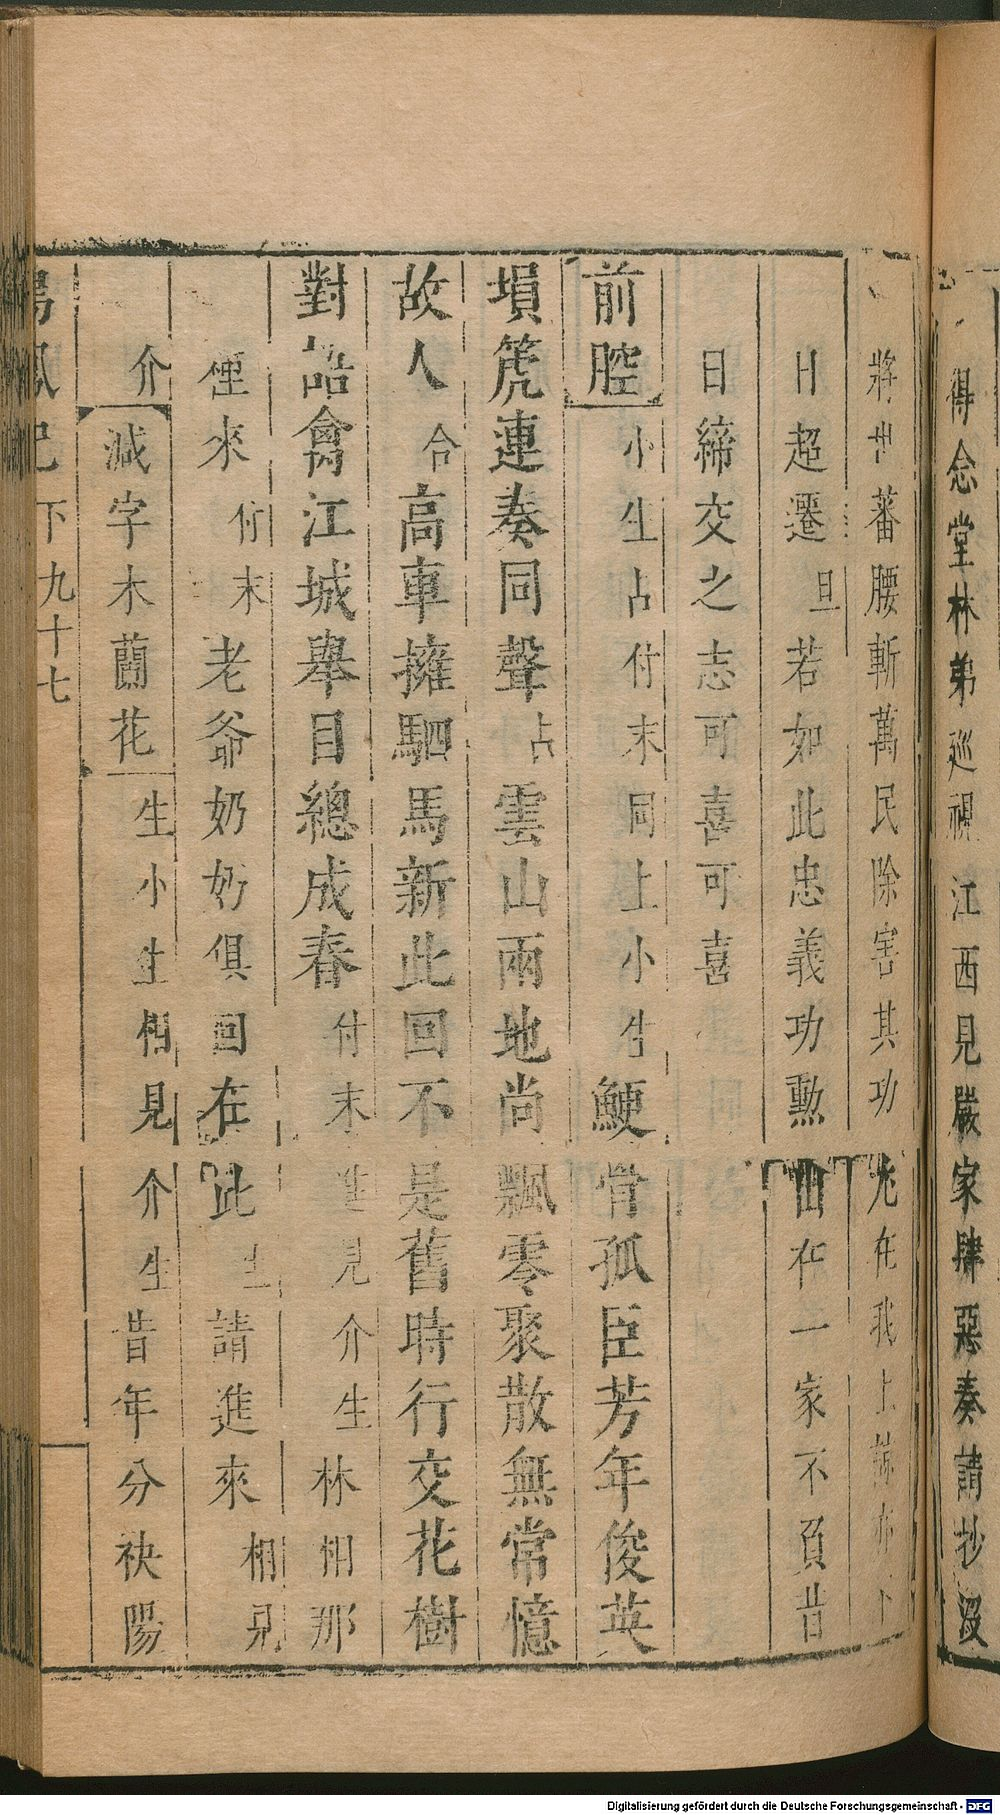 得念堂林弟巡視江西見嚴家肆惡奏請抄沒
將世蕃腰斬萬民除害其功尤在我上
日超遷旦若如此忠義功勲在一家不負昔
日締交之志可喜可喜
前腔小生占付末同上小生鯁骨孤臣芳年俊英
塤箎連奏同聲占雲山兩地尚飄零聚散無常憶
故人合高車擁駟馬新此回不是舊時行交花樹
對語禽江城舉目總成春付末進見介生林相那
俚來付末老爺奶奶俱回在此生請進來相見
介減字木蘭花生小生相見介生昔年分袂陽
鳳記下九十七
Digitalisierung gefördert durch die Deutsche Forschungsgemeinschaft - DFG